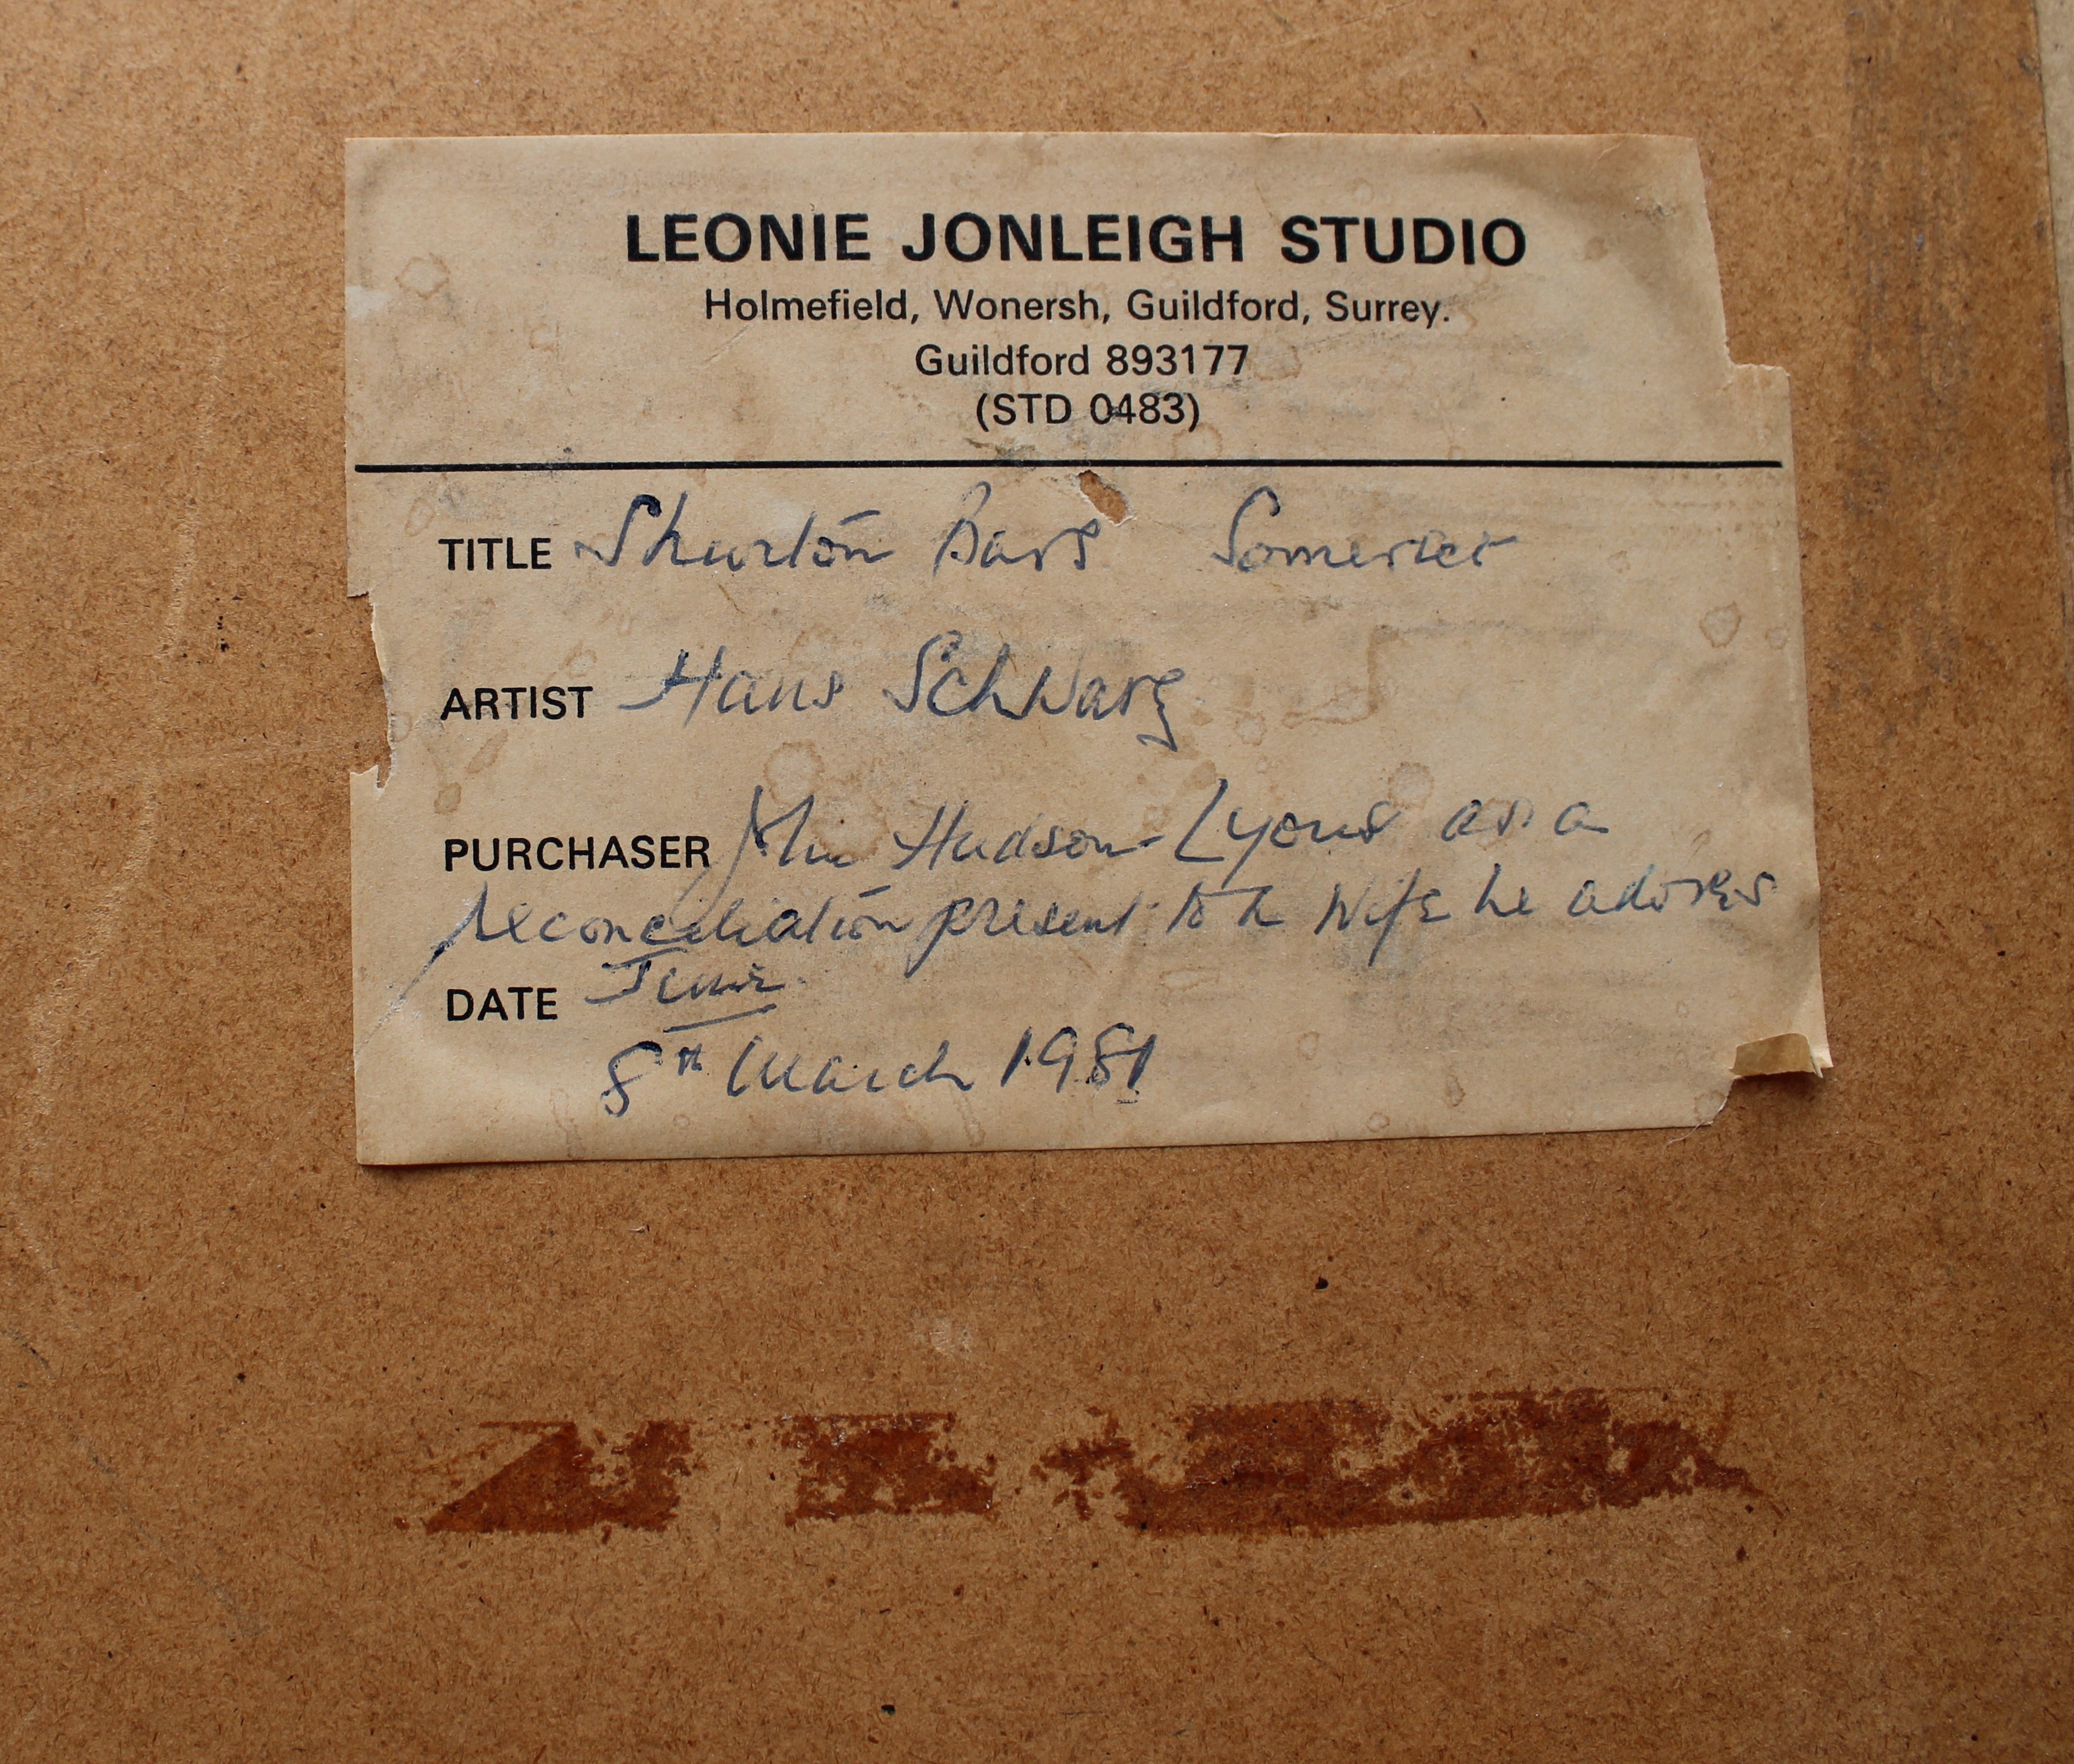 LEONIE JONLEIGH STUDIO
Holmefield, Wonersh, Guildford, Surrey.
Guildford 893177
(STD 0483)
TITLE Shurton Bars Somerset
ARTIST Hans Schwarz
PURCHASER John Hudson-Lyons as a
reconciliation present to a Wife he adores
DATE
8th March 1981